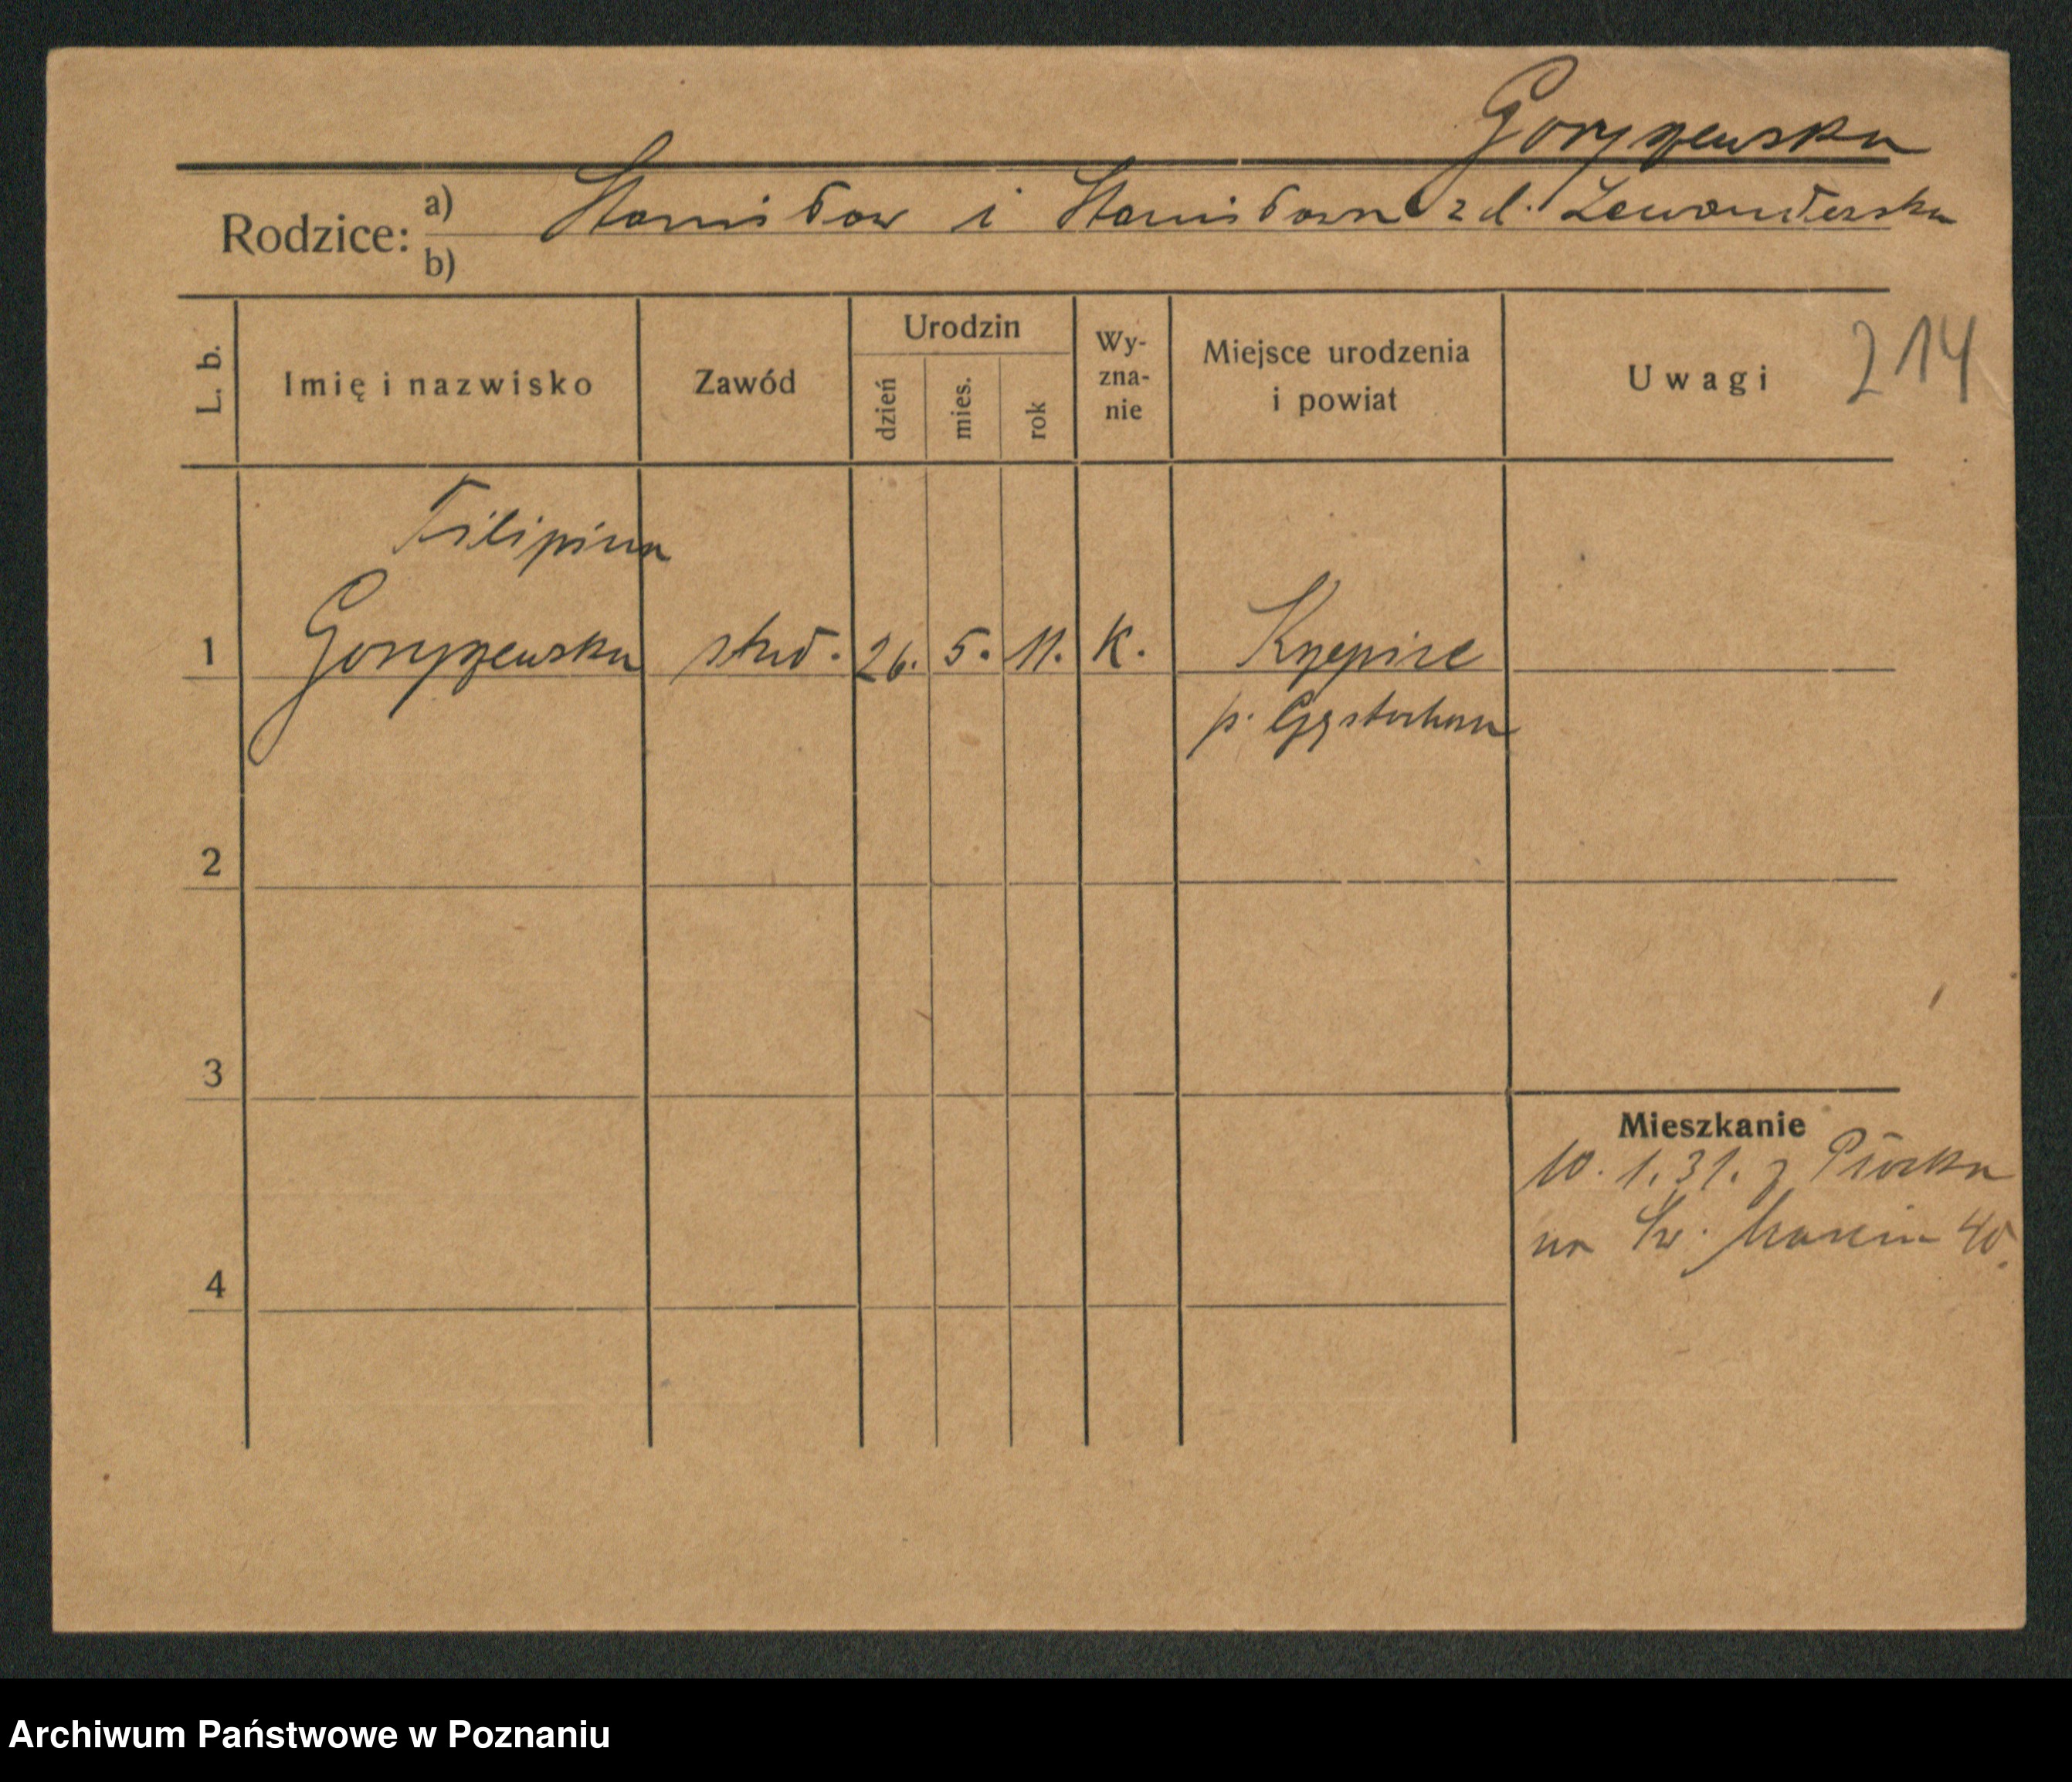 Goryszewska
Rodzice: a) Stanisław i Stanisława z d. Lewandowska
b)
L. b. Imię i nazwisko Zawód Urodzin dzień mies. rok Wy-zna-nie Miejsce urodzenia i powiat Uwagi 214
Filipina
1 Goryszewska stud. 26. 5. 11. K. Krzepice
p. Częstochowa
2
3
Mieszkanie
10. 1. 31. z Płocka
na Św. Marcin 40.
4
Archiwum Państwowe w Poznaniu